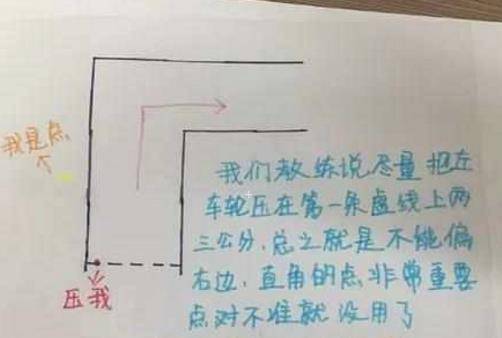 我是点
我们教练说尽量把左
车轮压在第一条虚线上两
三公分,总之就是不能偏
右边,直角的点非常重要
点对不准就没用了
压我